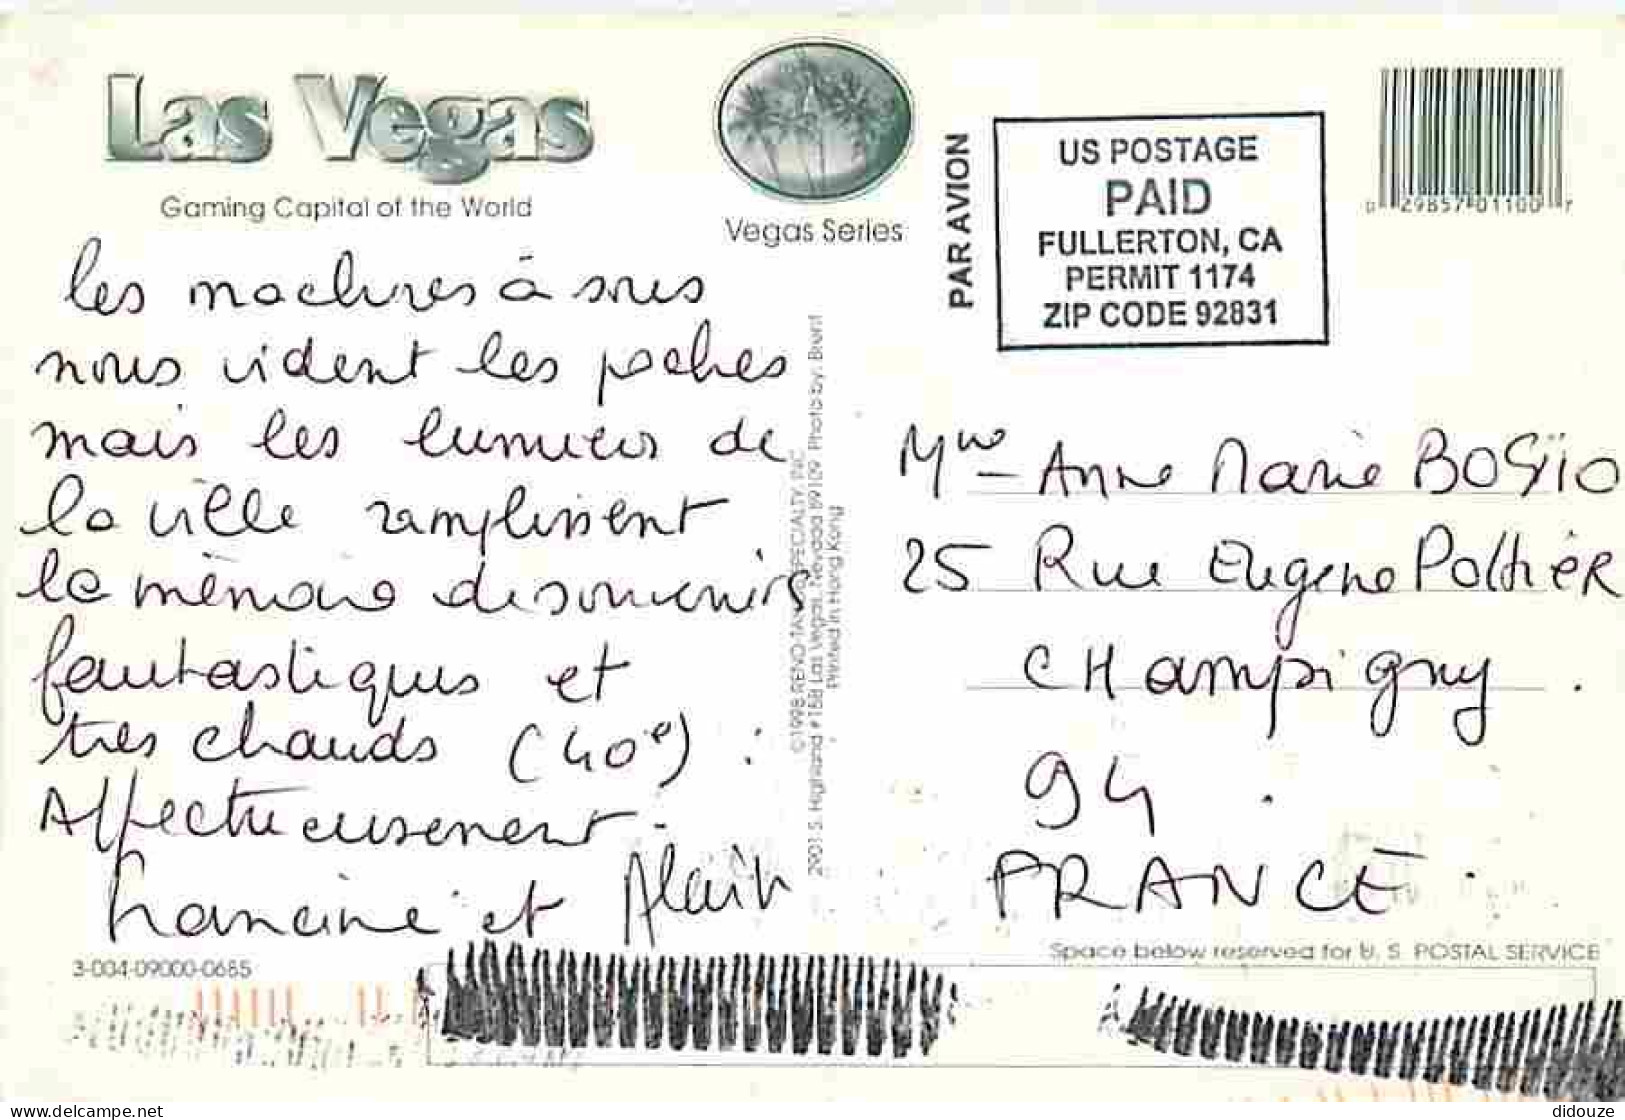 Las Vegas
Gaming Capital of the World
Vegas Series
PAR AVION
US POSTAGE
PAID
FULLERTON, CA
PERMIT 1174
ZIP CODE 92831
0 29857 01100 7
les machines à sous
nous vident les poches
mais les lumieres de
la ville remplissent
la mémoire de souvenirs
fantastiques et
tres chauds (40°).
Affectueusement.
Francine et Alain
©1998 RENO-TAHOE SPECIALTY, INC.
2901 S. Highland #15B Las Vegas, Nevada 89109 Photo by: Brent
Printed in Hong Kong
Anne Marie BOGGIO
25 Rue Eugene Pottier
CHampigny.
94.
FRANCE.
3-004-09000-0685
Space below reserved for U. S. POSTAL SERVICE
delcampe.net
didouze